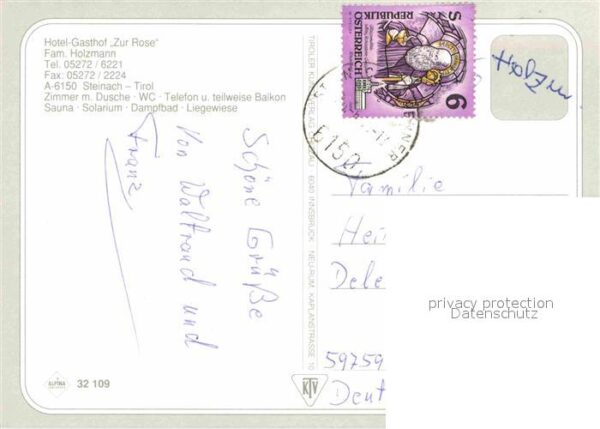 Hotel-Gasthof „Zur Rose"
Fam. Holzmann
Tel. 05272 / 6221
Fax: 05272 / 2224
A-6150 Steinach – Tirol
Zimmer m. Dusche · WC · Telefon u. teilweise Balkon
Sauna · Solarium · Dampfbad · Liegewiese
Schöne Grüße
von Waltraud und
Franz
ALPINA
32 109
6040 INNSBRUCK · NEURUM, KAPLANSTRASSE 10
KTV
REPUBLIK
ÖSTERREICH
S 6
6150
Holzm
Familie
Hei
Dele
59759
Deut
privacy protection
Datenschutz